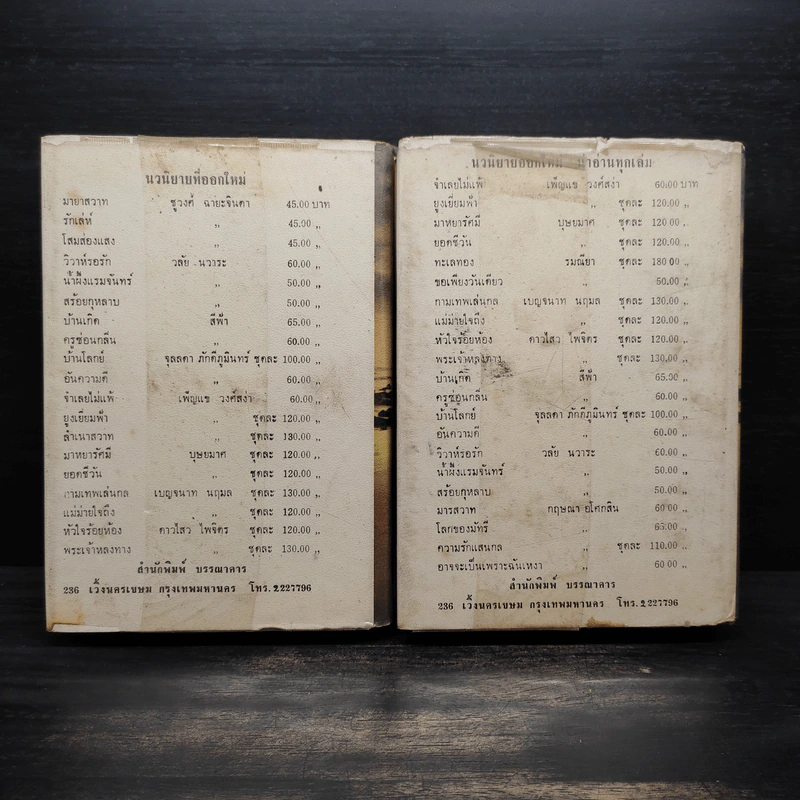 นวนิยายที่ออกใหม่
มายาสวาท ชูวงศ์ ฉายะจินดา 45.00 บาท
รักเล่ห์ ,, 45.00 ,,
โสมส่องแสง ,, 45.00 ,,
วิวาห์รอรัก วลัย นวาระ 60.00 ,,
น้ำผึ้งแรมจันทร์ ,, 50.00 ,,
สร้อยกุหลาบ ,, 50.00 ,,
บ้านเกิด สีฟ้า 65.00 ,,
ครูซ่อนกลิ่น ,, 60.00 ,,
บ้านโลกย์ จุลลดา ภักดีภูมินทร์ ชุดละ 100.00 ,,
อันความดี ,, 60.00 ,,
จำเลยไม่แพ้ เพ็ญแข วงศ์สง่า 60.00 ,,
ยูงเยี่ยมฟ้า ,, ชุดละ 120.00 ,,
ลำเนาสวาท ,, ชุดละ 130.00 ,,
มาหยารัศมี บุษยมาศ ชุดละ 120.00 ,,
ยอดชีวัน ,, ชุดละ 120.00 ,,
กามเทพเล่นกล เบญจนาท นฤมล ชุดละ 130.00 ,,
แม่ม่ายใจถึง ,, ชุดละ 120.00 ,,
หัวใจร้อยห้อง ดาวไสว ไพจิตร ชุดละ 120.00 ,,
พระเจ้าหลงทาง ,, ชุดละ 130.00 ,,
สำนักพิมพ์ บรรณาคาร
236 เวิ้งนครเขษม กรุงเทพมหานคร โทร. 2227796
นวนิยายออกใหม่ น่าอ่านทุกเล่ม
จำเลยไม่แพ้ เพ็ญแข วงศ์สง่า 60.00 บาท
ยูงเยี่ยมฟ้า ,, ชุดละ 120.00 ,,
มาหยารัศมี บุษยมาศ ชุดละ 120.00 ,,
ยอดชีวัน ,, ชุดละ 120.00 ,,
ทะเลทอง รมณียา ชุดละ 180 00 ,,
ขอเพียงวันเดียว ,, 50.00 ,,
กามเทพเล่นกล เบญจนาท นฤมล ชุดละ 130.00 ,,
แม่ม่ายใจถึง ,, ชุดละ 120.00 ,,
หัวใจร้อยห้อง ดาวไสว ไพจิตร ชุดละ 120.00 ,,
พระเจ้าหลงทาง ,, ชุดละ 130.00 ,,
บ้านเกิด สีฟ้า 65.00 ,,
ครูซ่อนกลิ่น ,, 60.00 ,,
บ้านโลกย์ จุลลดา ภักดีภูมินทร์ ชุดละ 100.00 ,,
อันความดี ,, 60.00 ,,
วิวาห์รอรัก วลัย นวาระ 60.00 ,,
น้ำผึ้งแรมจันทร์ ,, 50.00 ,,
สร้อยกุหลาบ ,, 50.00 ,,
มารสวาท กฤษณา อโศกสิน 60 00 ,,
โลกของมัทรี ,, 65.00 ,,
ความรักแสนกล ,, ชุดละ 110.00 ,,
อาจจะเป็นเพราะฉันเหงา ,, 60 00 ,,
สำนักพิมพ์ บรรณาคาร
236 เวิ้งนครเขษม กรุงเทพมหานคร โทร. 2227796